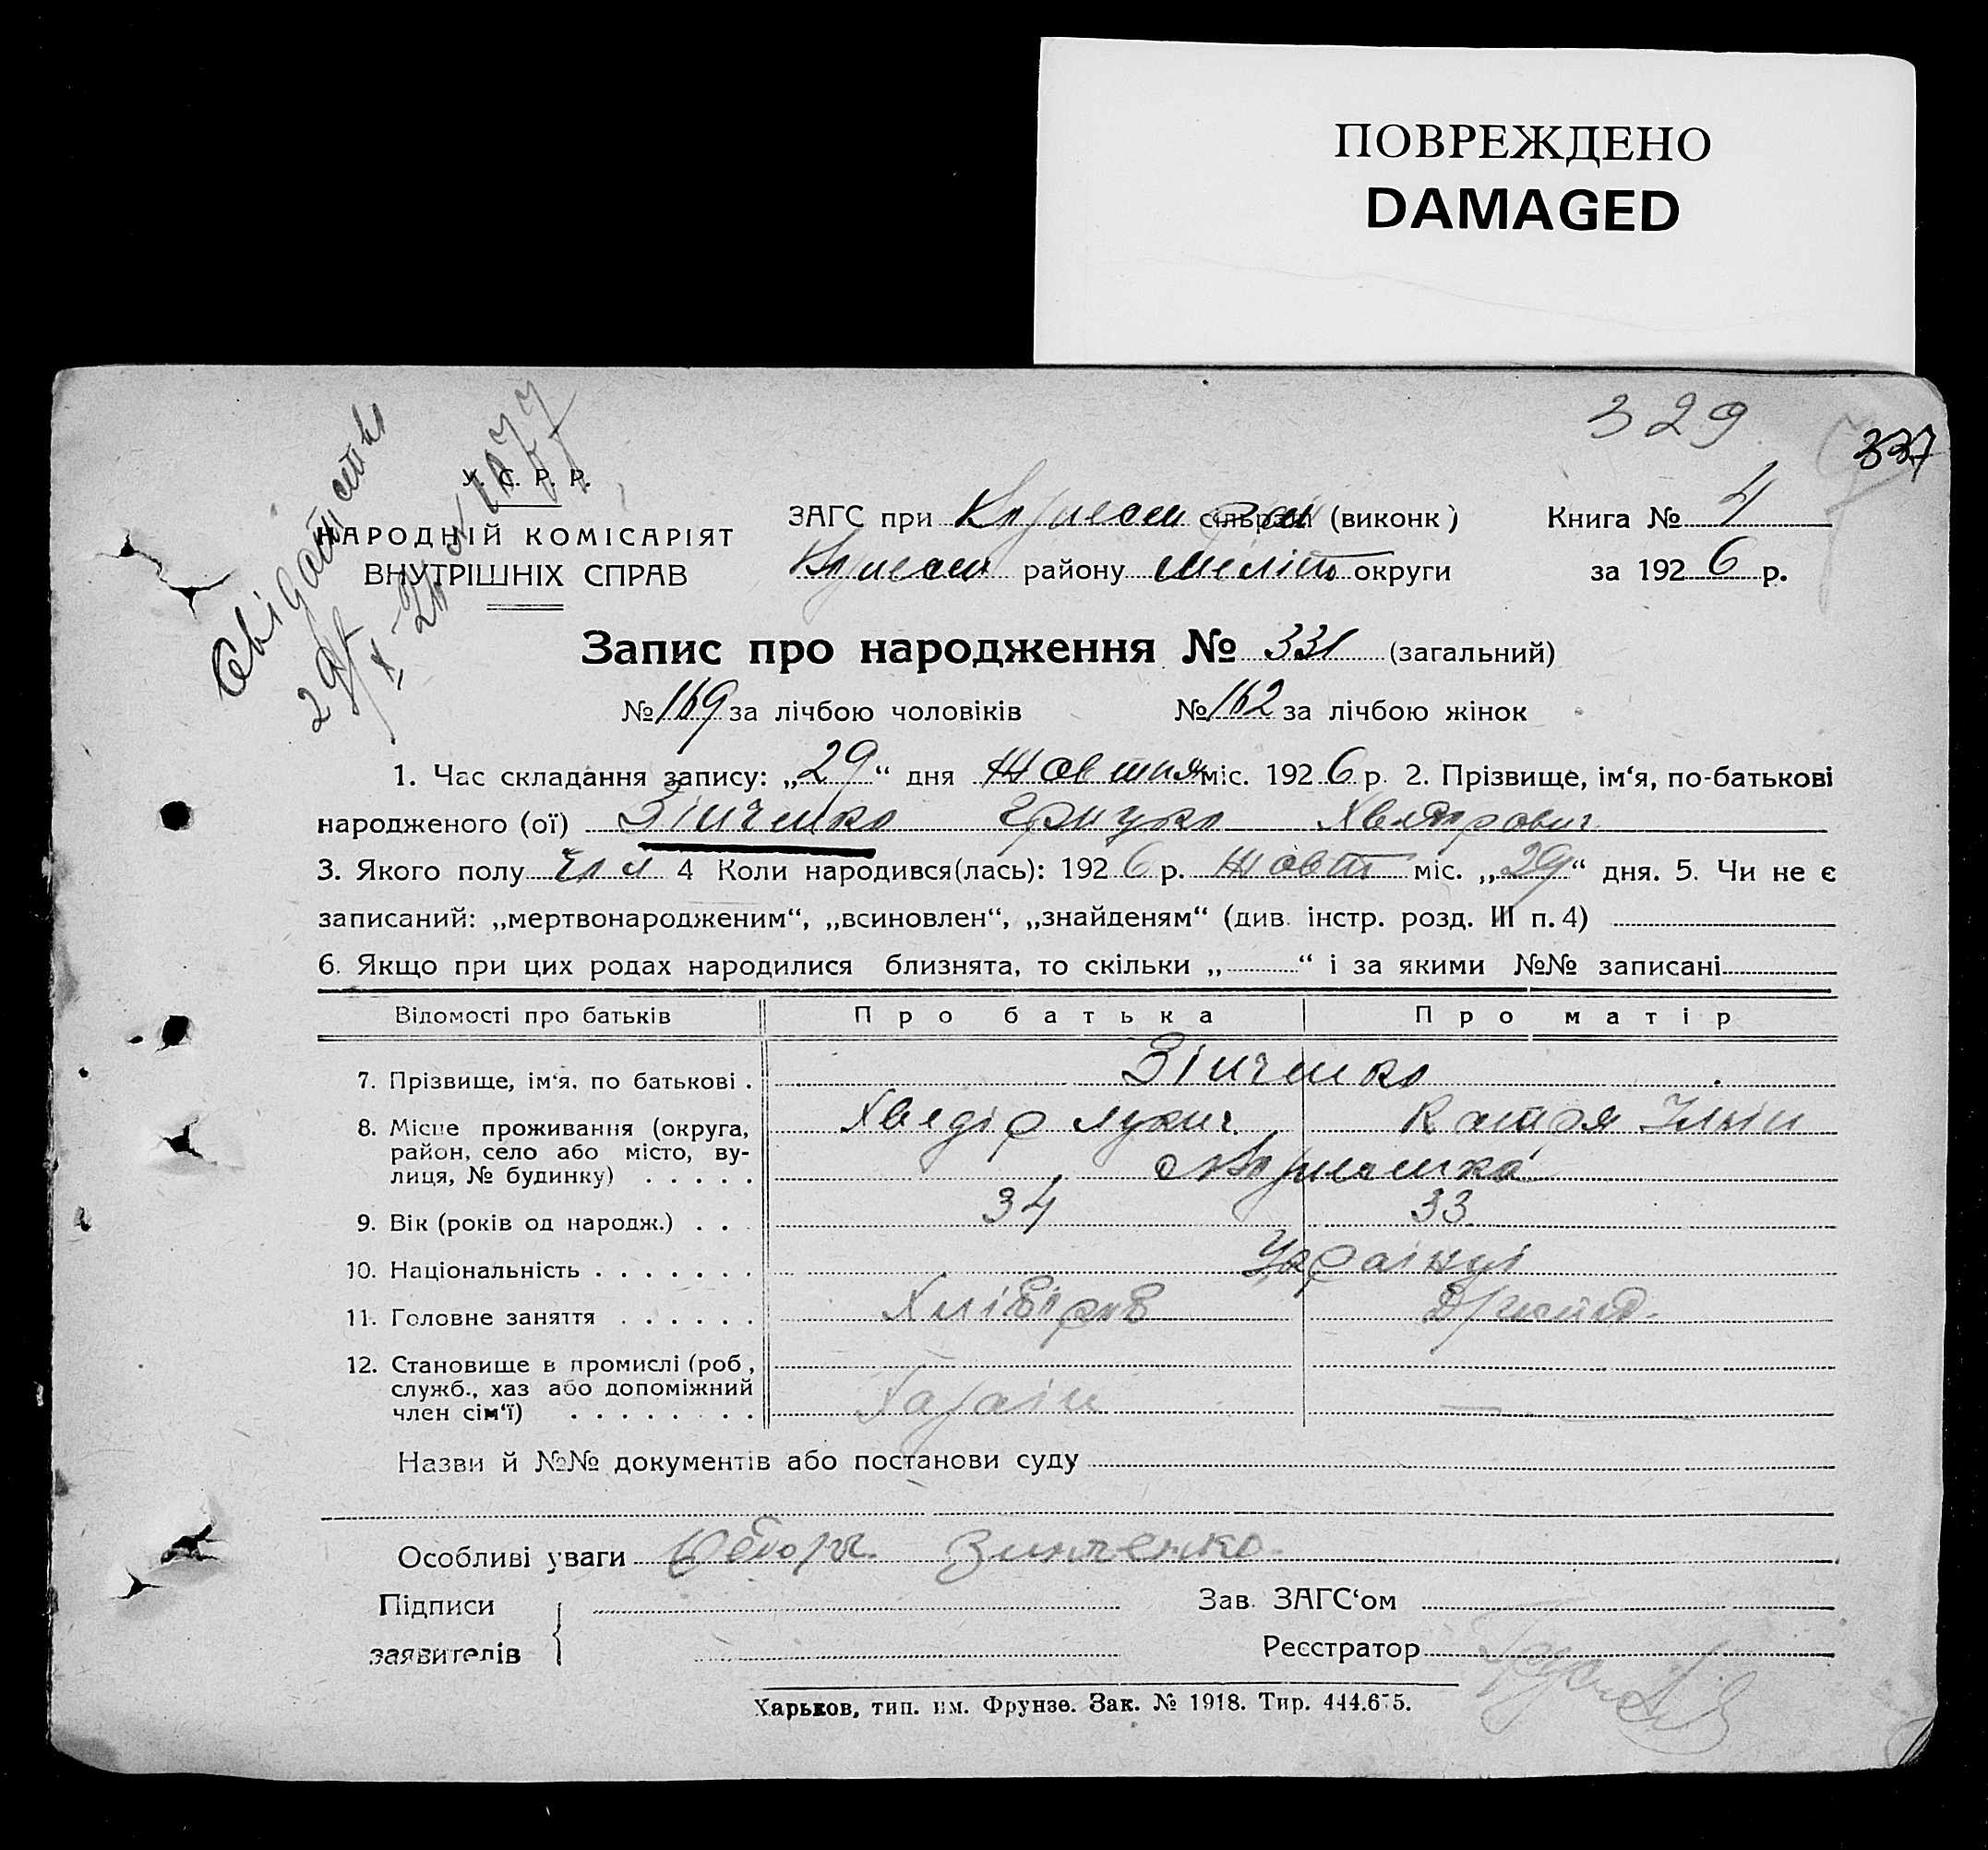 ПОВРЕЖДЕНО
DAMAGED
329
337
У. С. Р. Р.
НАРОДНІЙ КОМІСАРІЯТ
ВНУТРІШНІХ СПРАВ
ЗАГС при сільрэди (виконк)
району Меліт округи
Книга № 4
за 1926 р.
Запис про народження № 331 (загальний)
№ 169 за лічбою чоловіків № 162 за лічбою жінок
1. Час складання запису: „29“ дня Жовтня міс. 1926 р. 2. Прізвище, ім‘я, по-батькові
народженого (ої) Зінченко Грицко Хведорович
3. Якого полу Чол 4 Коли народився(лась): 1926 р. Жовт міс. „29“ дня. 5. Чи не є
записаний: „мертвонародженим“, „всиновлен“, „знайденям“ (див. інстр. розд. III п. 4)
6. Якщо при цих родах народилися близнята, то скільки „ “ і за якими №№ записані
Відомості про батьків Про батька Про матір
7. Прізвище, ім‘я, по батькові . Зінченко
8. Місце проживання (округа, Хведір Лукич Катря Ільін
район, село або місто, ву-
лиця, № будинку) . . . . .
9. Вік (років од народж.) . . 34 33
10. Національність . . . . . . . Українці
11. Головне заняття . . . . . . Хлібороб
12. Становище в промислі (роб.,
служб., хаз або допоміжний
член сім‘ї) . . . . . . . . Хазаін
Назви й №№ документів або постанови суду
Особливі уваги Зинченко
Підписи
заявителів
Зав. ЗАГС‘ом
Реєстратор
Харьков, тип. им. Фрунзе. Зак. № 1918. Тир. 444.675.